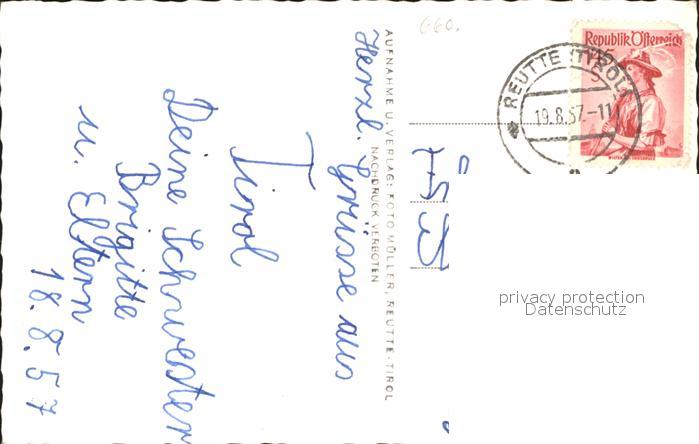 Herzl. Grüsse aus
Tirol
Deine Schwester
Brigitte
u. Eltern
18.8.57
AUFNAHME U. VERLAG: FOTO MÜLLER, REUTTE-TIROL
NACHDRUCK VERBOTEN
660.
Republik Österreich
REUTTE (TYROL)
19.8.57.-11
privacy protection
Datenschutz